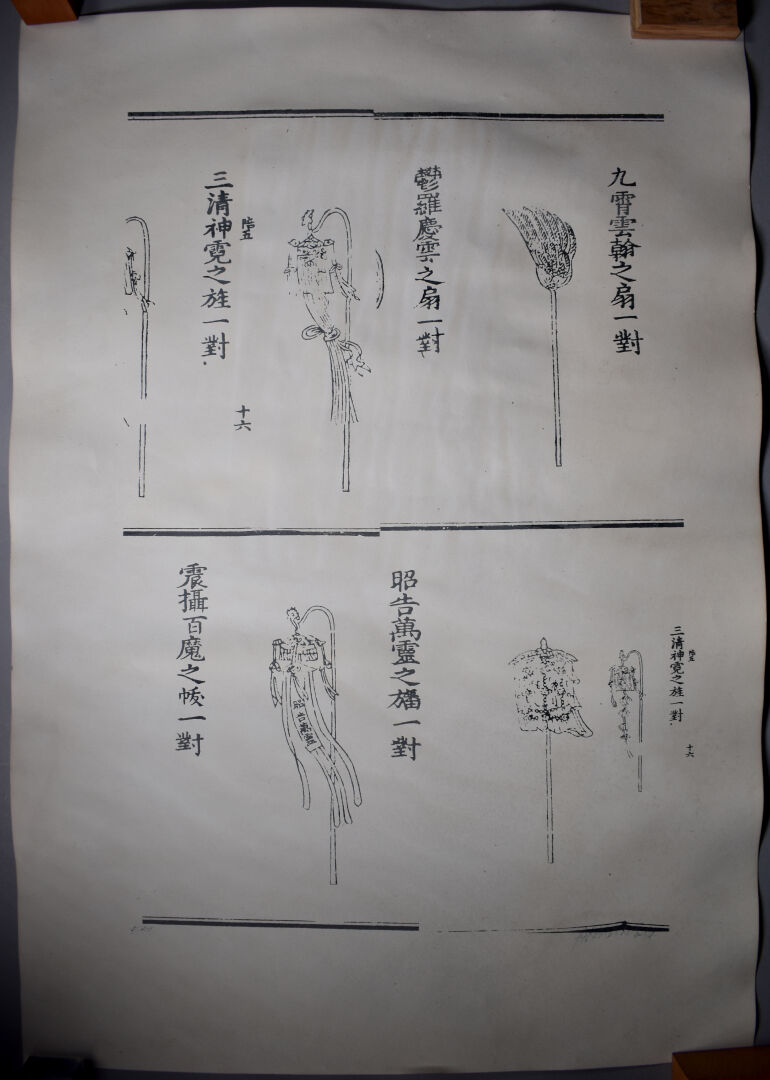 九霄雲翰之扇一對
鬱羅慶雲之扇一對
陸五
十六
三清神霓之旌一對
三清神霓之旌一對
陸五
十六
昭告萬靈之旛一對
昭告萬靈
震攝百魔之帔一對